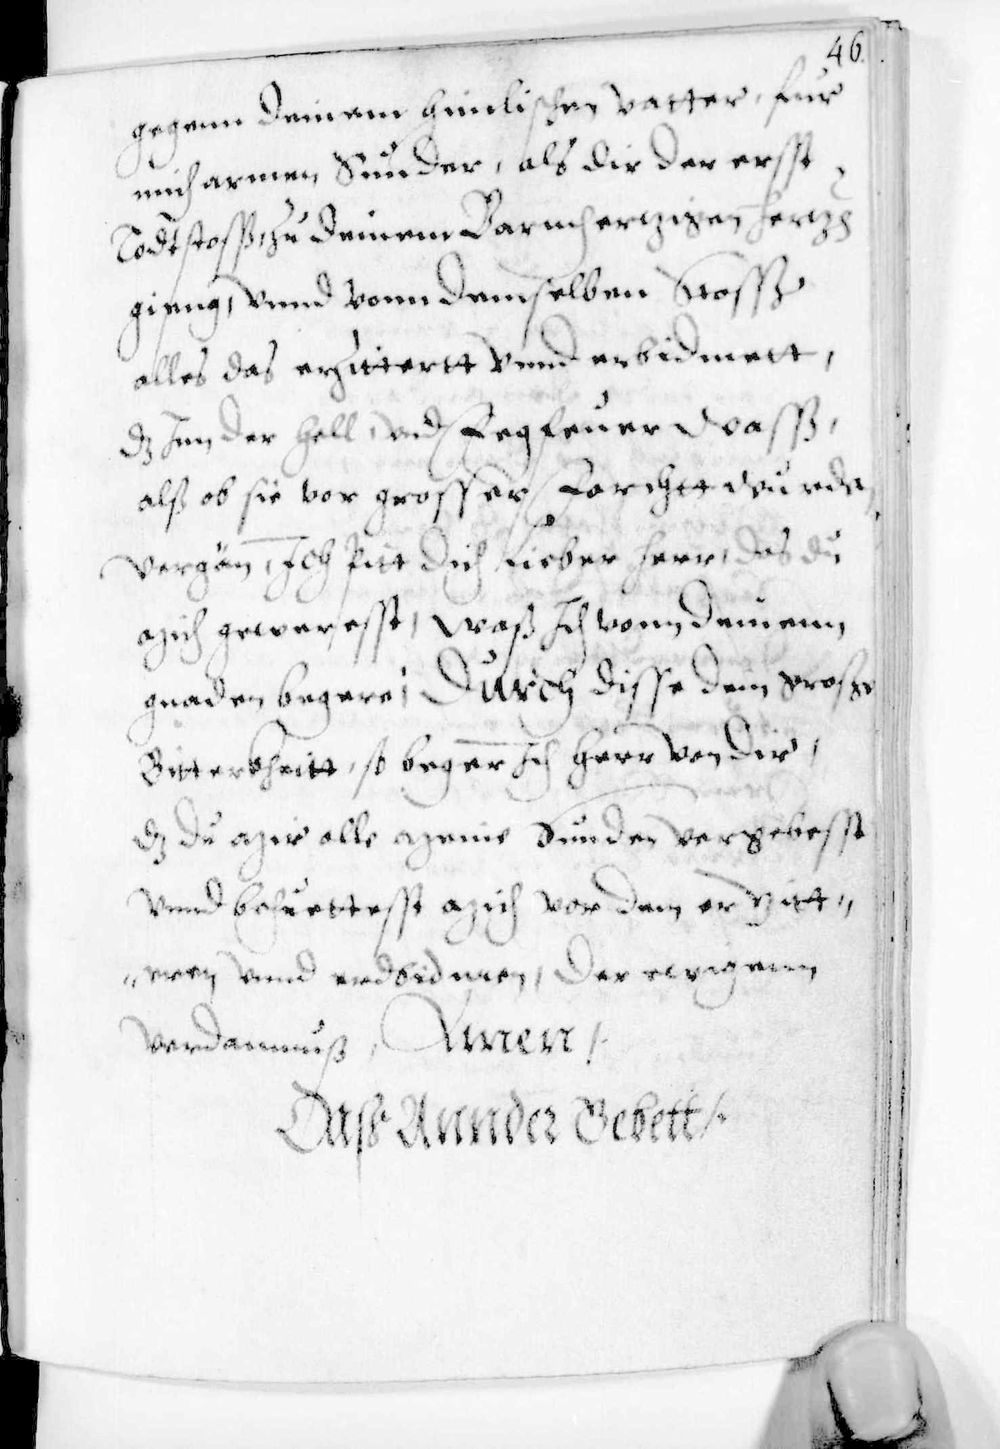 46.
gegenn deinem himlischen vatter, fur
mich armen Sunder, als dir der ersst
Todtstoss, zu deinem Barmhertzigen hertzen
gieng, vnnd vonn demselben Stosss
alles das erzittertt vnnd erbidmett,
dz Inn der hell, vnd Fegfeuer wasss,
alß ob sie vor grosser Forchtt wurde
vergan, Ich pitt dich lieber herr, das du
mich geweresst, waß Ich vonn deinenn
gnaden begere, Durch disse dein grosse
Bitterkheitt, so beger Ich herr von dir,
dz du mir alle meine Sunden vergebesst
vnnd behuettesst mich vor dem erzitt„
„eren vnnd erdbidmen, der ewigenn
verdamnuß, Amen /.
Dass Annder Gebett /.